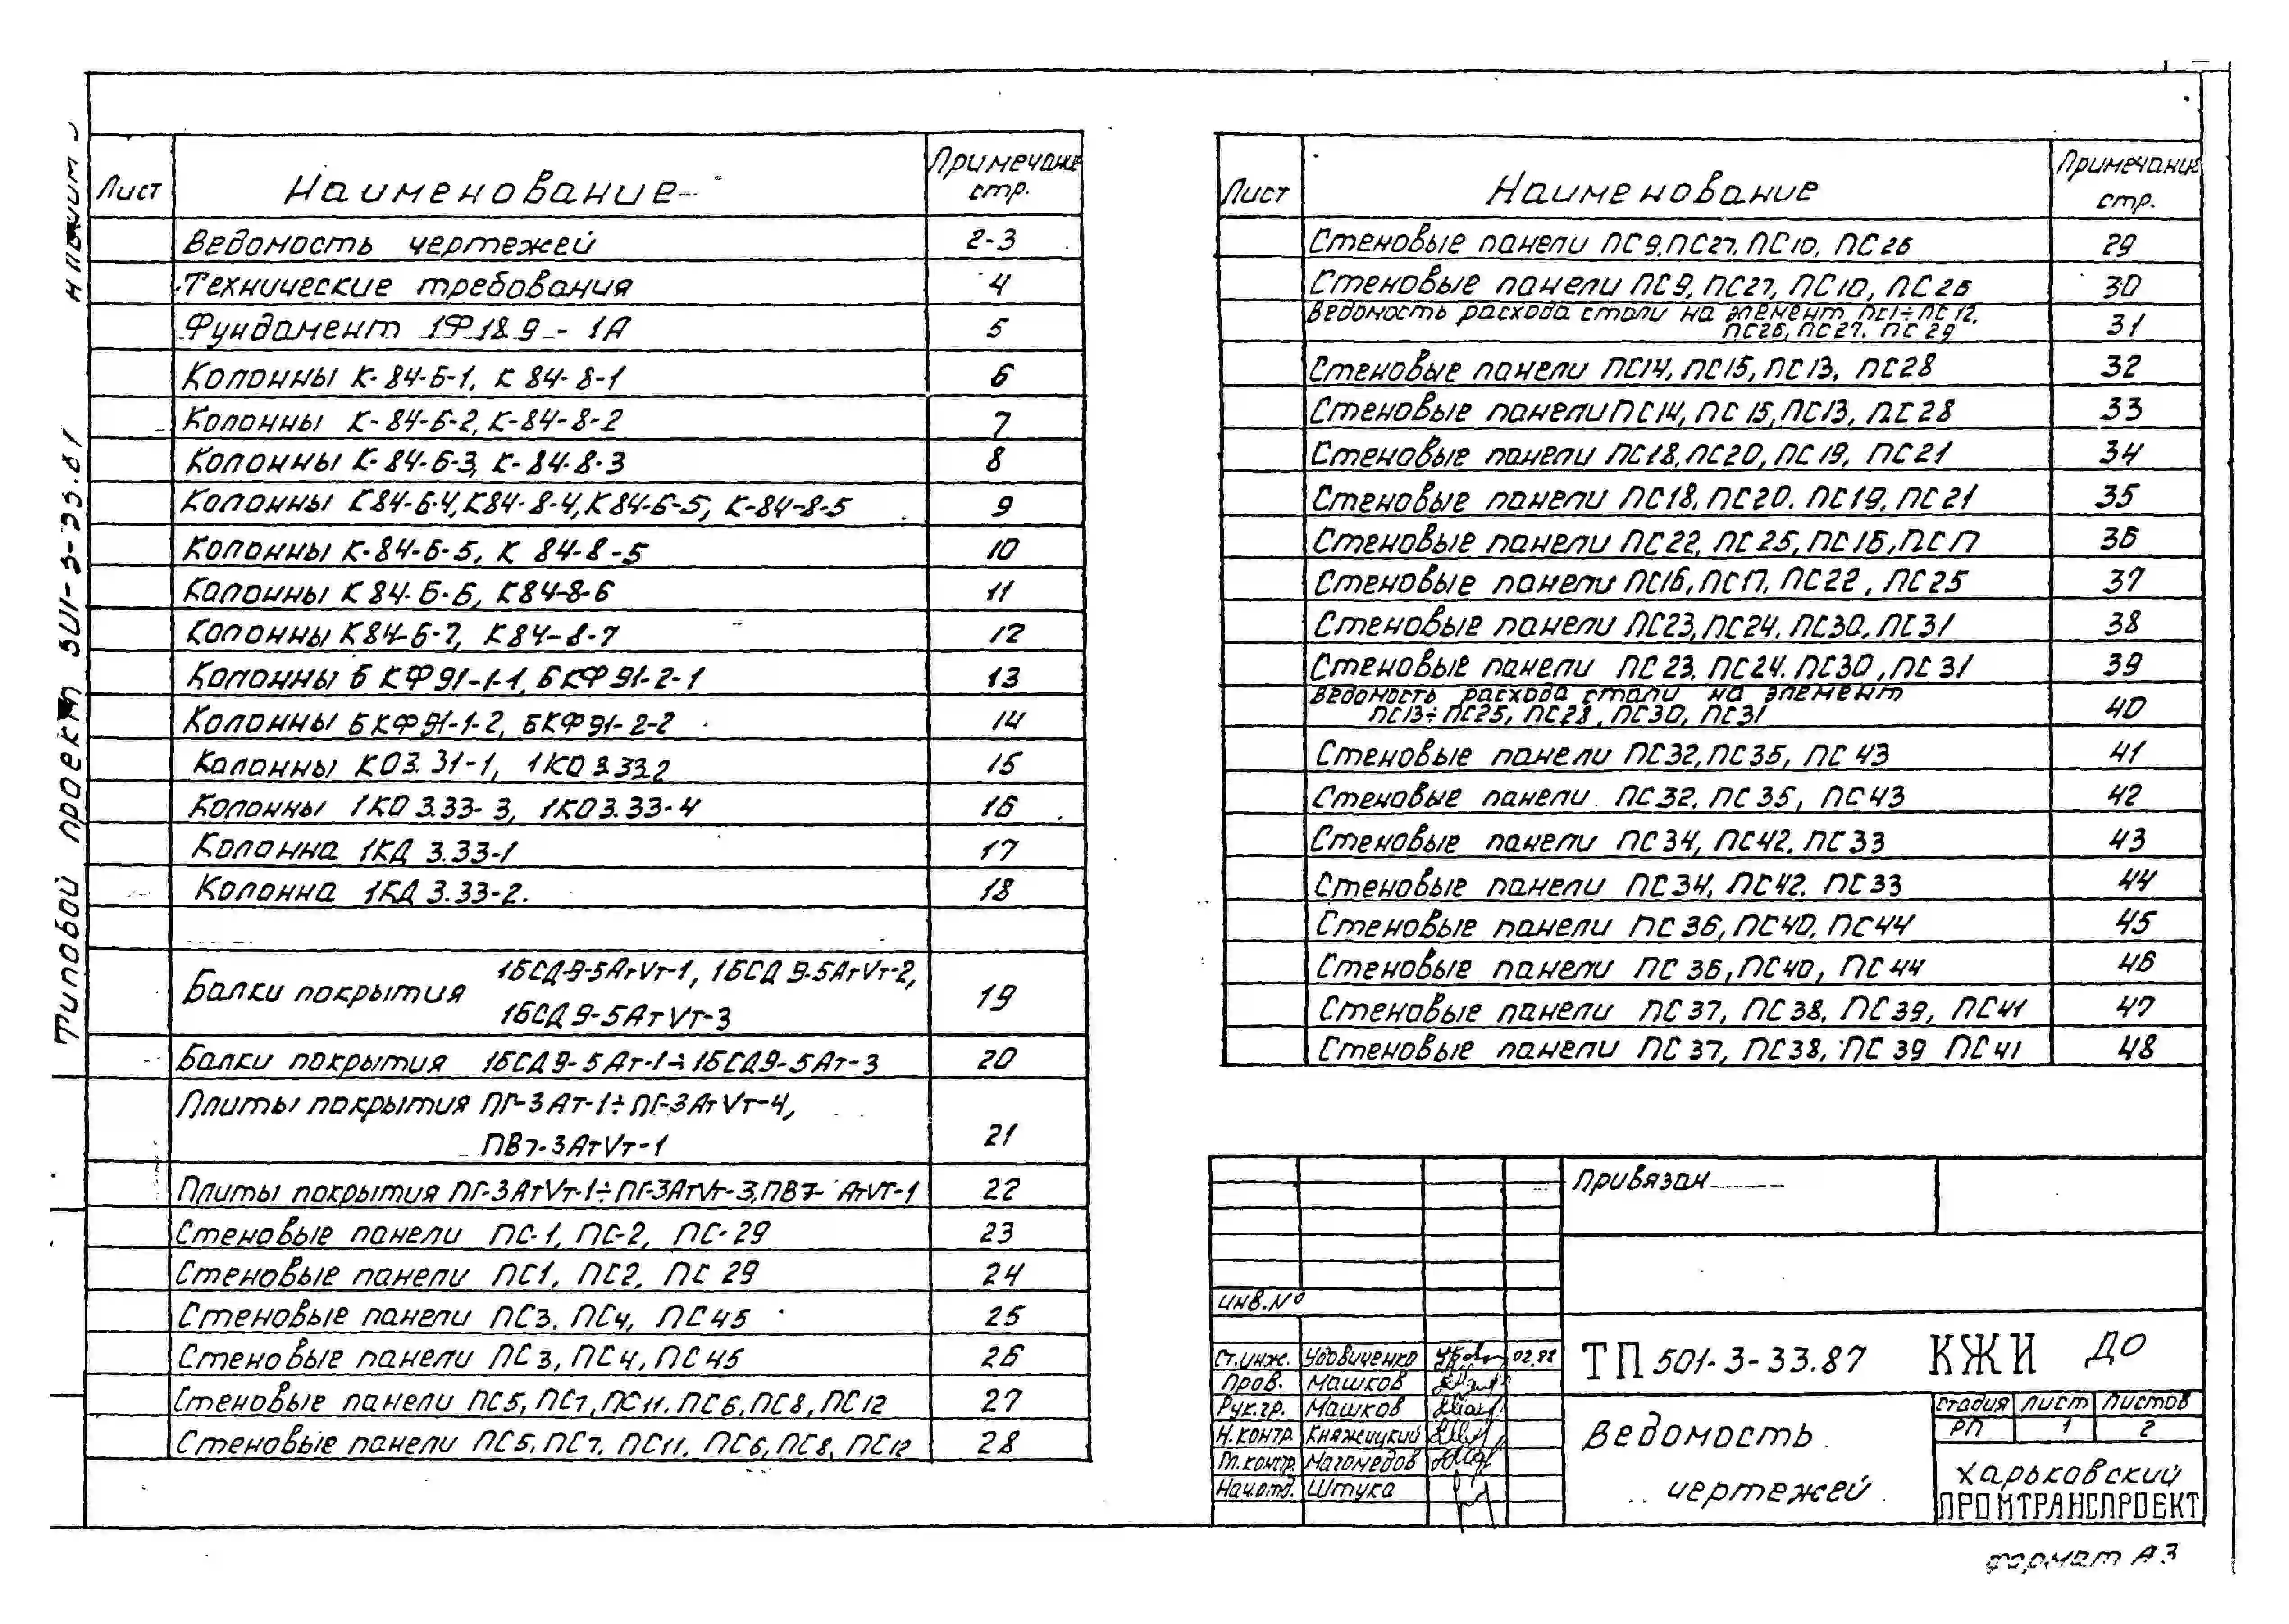 Типовой проект 501-3-33.87
Лист Наименование Примечание стр.
Ведомость чертежей 2-3
Технические требования 4
Фундамент 1Ф18.9-1А 5
Колонны К-84-6-1, К 84-8-1 6
Колонны К-84-6-2, К-84-8-2 7
Колонны К-84-6-3, К-84-8-3 8
Колонны К84-6-4, К84-8-4, К84-6-5, К-84-8-5 9
Колонны К-84-6-5, К 84-8-5 10
Колонны К84-6-6, К84-8-6 11
Колонны К84-6-7, К84-8-7 12
Колонны 6КФ91-1-1, 6КФ91-2-1 13
Колонны 6КФ91-1-2, 6КФ91-2-2 14
Колонны КО3.31-1, 1КО3.33.2 15
Колонны 1КО3.33-3, 1КО3.33-4 16
Колонна 1КД 3.33-1 17
Колонна 1КД 3.33-2. 18
Балки покрытия 1БСД-9-5АтVт-1, 1БСД9-5АтVт-2,
1БСД9-5АтVт-3 19
Балки покрытия 1БСД9-5Ат-1÷1БСД9-5Ат-3 20
Плиты покрытия ПГ-3Ат-1÷ПГ-3АтVт-4,
ПВ7-3АтVт-1 21
Плиты покрытия ПГ-3АтVт-1÷ПГ-3АтVт-3, ПВ7-АтVт-1 22
Стеновые панели ПС-1, ПС-2, ПС-29 23
Стеновые панели ПС1, ПС2, ПС 29 24
Стеновые панели ПС3, ПС4, ПС45 25
Стеновые панели ПС3, ПС4, ПС45 26
Стеновые панели ПС5, ПС7, ПС11, ПС6, ПС8, ПС12 27
Стеновые панели ПС5, ПС7, ПС11, ПС6, ПС8, ПС12 28
Лист Наименование Примечание стр.
Стеновые панели ПС9, ПС27, ПС10, ПС26 29
Стеновые панели ПС9, ПС27, ПС10, ПС26 30
Ведомость расхода стали на элемент ПС1÷ПС12,
ПС26, ПС27, ПС29 31
Стеновые панели ПС14, ПС15, ПС13, ПС28 32
Стеновые панели ПС14, ПС15, ПС13, ПС28 33
Стеновые панели ПС18, ПС20, ПС19, ПС21 34
Стеновые панели ПС18, ПС20, ПС19, ПС21 35
Стеновые панели ПС22, ПС25, ПС16, ПС17 36
Стеновые панели ПС16, ПС17, ПС22, ПС25 37
Стеновые панели ПС23, ПС24, ПС30, ПС31 38
Стеновые панели ПС23, ПС24, ПС30, ПС31 39
Ведомость расхода стали на элемент
ПС13÷ПС25, ПС28, ПС30, ПС31 40
Стеновые панели ПС32, ПС35, ПС43 41
Стеновые панели ПС32, ПС35, ПС43 42
Стеновые панели ПС34, ПС42, ПС33 43
Стеновые панели ПС34, ПС42, ПС33 44
Стеновые панели ПС36, ПС40, ПС44 45
Стеновые панели ПС36, ПС40, ПС44 46
Стеновые панели ПС37, ПС38, ПС39, ПС41 47
Стеновые панели ПС37, ПС38, ПС39 ПС41 48
Привязан
Инв.№
Ст.инж. Удовиченко 02.88
Пров. Машков
Рук.гр. Машков
Н.контр. Княжицкий
Гл.констр. Магомедов
Нач.отд. Штука
ТП 501-3-33.87 КЖИ ДО
Ведомость
чертежей
стадия лист листов
РП 1 2
Харьковский
ПРОМТРАНСПРОЕКТ
формат А3